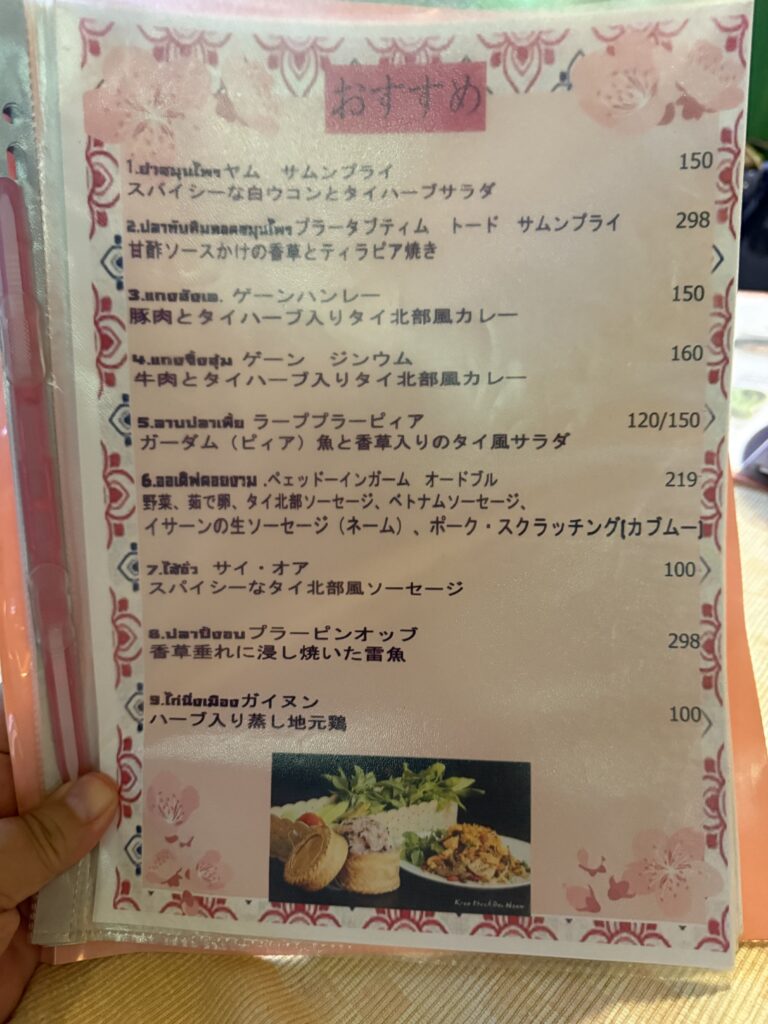 おすすめ
1.ยำสมุนไพรヤム サムンプライ 150
スパイシーな白ウコンとタイハーブサラダ
2.ปลาทับทิมทอดสมุนไพรプラータブティム トード サムンプライ 298
甘酢ソースかけの香草とティラピア焼き
3.แกงฮังเล. ゲーンハンレー 150
豚肉とタイハーブ入りタイ北部風カレー
4.แกงจิ้งฮุ่ม ゲーン ジンウム 160
牛肉とタイハーブ入りタイ北部風カレー
5.ลาบปลาเพี้ย ラーププラーピィア 120/150
ガーダム（ピィア）魚と香草入りのタイ風サラダ
6.ออเดิฟดอยงาม .ペェッドーインガーム オードブル 219
野菜、茹で卵、タイ北部ソーセージ、ベトナムソーセージ、
イサーンの生ソーセージ（ネーム）、ポーク・スクラッチング(カブムー)
7.ไส้อั่ว サイ・オア 100
スパイシーなタイ北部風ソーセージ
8.ปลาปิ้งอบプラーピンオッブ 298
香草垂れに浸し焼いた雷魚
9.ไก่นึ่งเมืองガイヌン 100
ハーブ入り蒸し地元鶏